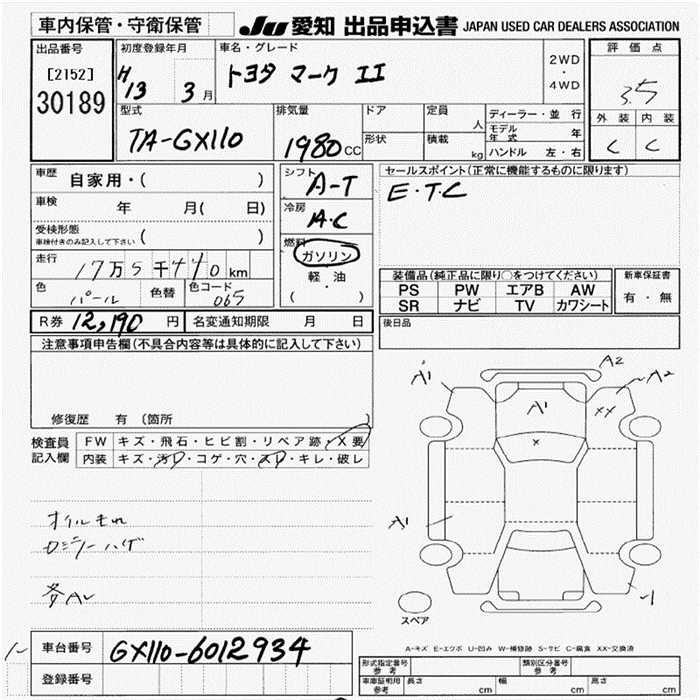 車内保管・守衛保管
JU 愛知 出品申込書 JAPAN USED CAR DEALERS ASSOCIATION
出品番号
[2152]
30189
初度登録年月
H13 3月
車名・グレード
トヨタ マーク II
2WD
・
4WD
評価点
3.5
外装 内装
C C
型式
TA-GX110
排気量
1980 CC
ドア
形状
定員 人
積載 kg
ディーラー・並 行
モデル年式 年
ハンドル 左・右
車歴 自家用・( )
車検 年 月( 日)
受検形態
車検付きのみ記入して下さい ( )
走行 17万5千440km
色 パール 色替 色コード 065
シフト
A-T
冷房
A.C
燃料
ガソリン
軽・油
( )
セールスポイント(正常に機能するものに限ります)
E・T・C
装備品(純正品に限り○をつけてください)
PS PW エアB AW
SR ナビ TV カワシート
新車保証書
有・無
R券 12,190 円 名変通知期限 月 日
後日品
注意事項申告欄(不具合内容等は具体的に記入して下さい)
修復歴 有 (箇所 )
検査員
記入欄
FW キズ・飛石・ヒビ割・リペア跡・X要
内装 キズ・汚れ・コゲ・穴・スレ・キレ・破レ
オイルモレ
ハゲ
各Aレ
A1
A2
A2
A1
XX
X
A1
スペア
A-キズ E-エクボ U-凹み W-補修跡 S-サビ C-腐食 XX-交換済
車台番号 GX110-6012934
登録番号
形式指定番号
参考
類別区分番号
参考
車庫証明用
参考
長さ cm 幅 cm 高さ cm